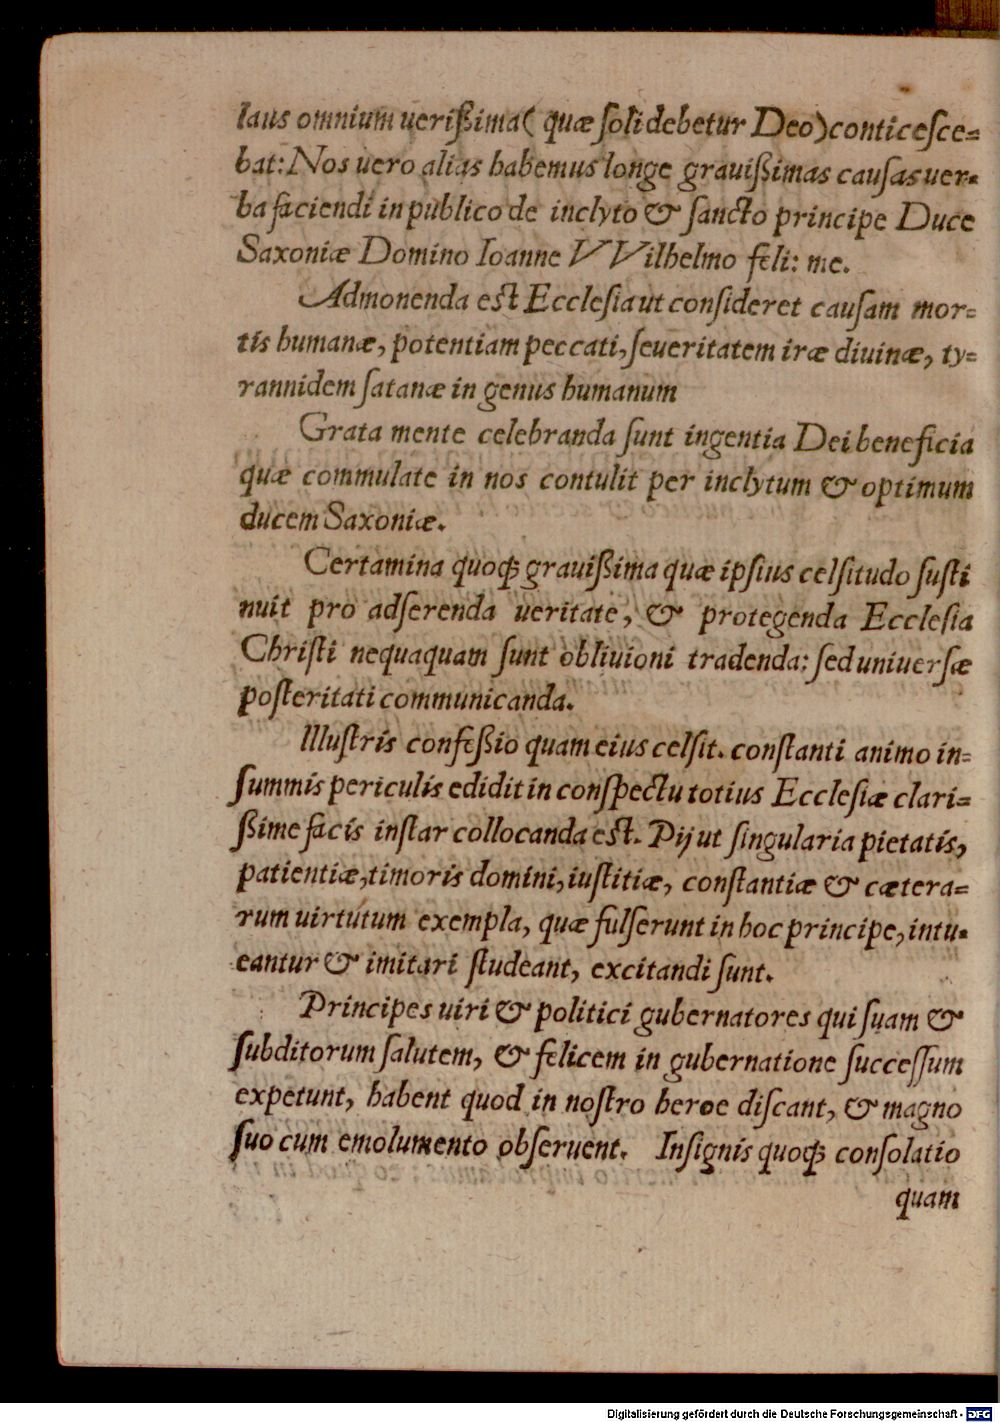 laus omnium uerißima( quæ ſoli debetur Deo)conticeſce=
bat: Nos uero alias habemus longe grauißimas cauſas uer=
ba faciendi in publico de inclyto & ſancto principe Duce
Saxoniæ Domino Ioanne VVilhelmo feli: me.
Admonenda est Eccleſia ut conſideret cauſam mor=
tis humanæ, potentiam peccati, ſeueritatem iræ diuinæ, ty=
rannidem ſatanæ in genus humanum
Grata mente celebranda ſunt ingentia Dei beneficia
quæ commulate in nos contulit per inclytum & optimum
ducem Saxoniæ.
Certamina quoq; grauißima quæ ipſius celſitudo ſuſti
nuit pro adſerenda ueritate, & protegenda Eccleſia
Chriſti nequaquam ſunt obliuioni tradenda: ſed uniuerſæ
poſteritati communicanda.
Illuſtris confeßio quam eius celſit. conſtanti animo in=
ſummis periculis edidit in conſpectu totius Eccleſiæ clari=
ßime facis inſtar collocanda est. Pij ut ſingularia pietatis,
patientiæ, timoris domini, iuſtitiæ, conſtantiæ & cætera=
rum uirtutum exempla, quæ fulſerunt in hoc principe, intu=
eantur & imitari ſtudeant, excitandi ſunt.
Principes uiri & politici gubernatores qui ſuam &
ſubditorum ſalutem, & felicem in gubernatione ſucceſſum
expetunt, habent quod in noſtro heroe diſcant, & magno
ſuo cum emolumento obſeruent. Inſignis quoq; conſolatio
quam
Digitalisierung gefördert durch die Deutsche Forschungsgemeinschaft - DFG